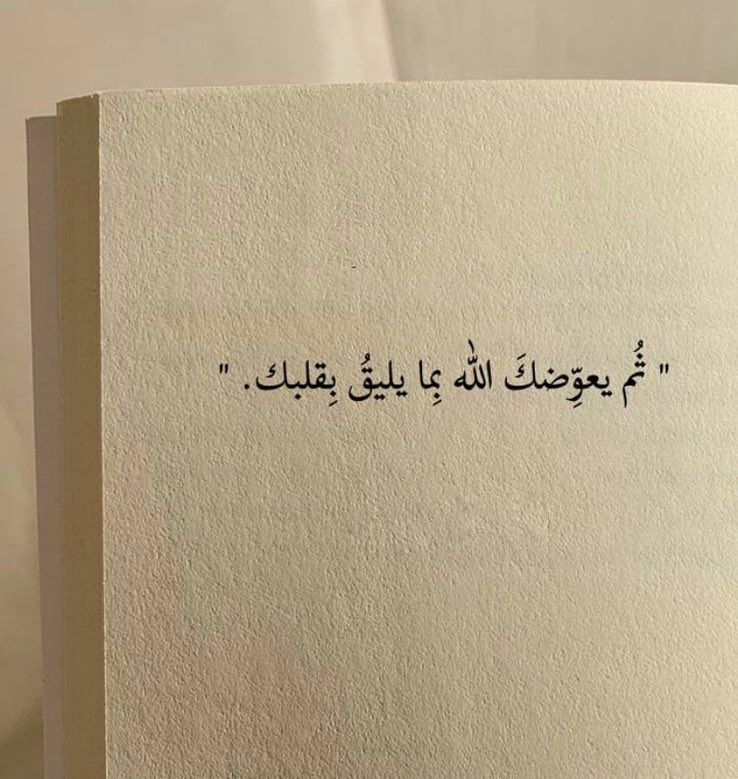 " ثُم يعوِّضكَ الله بِما يليقُ بِقلبك. "